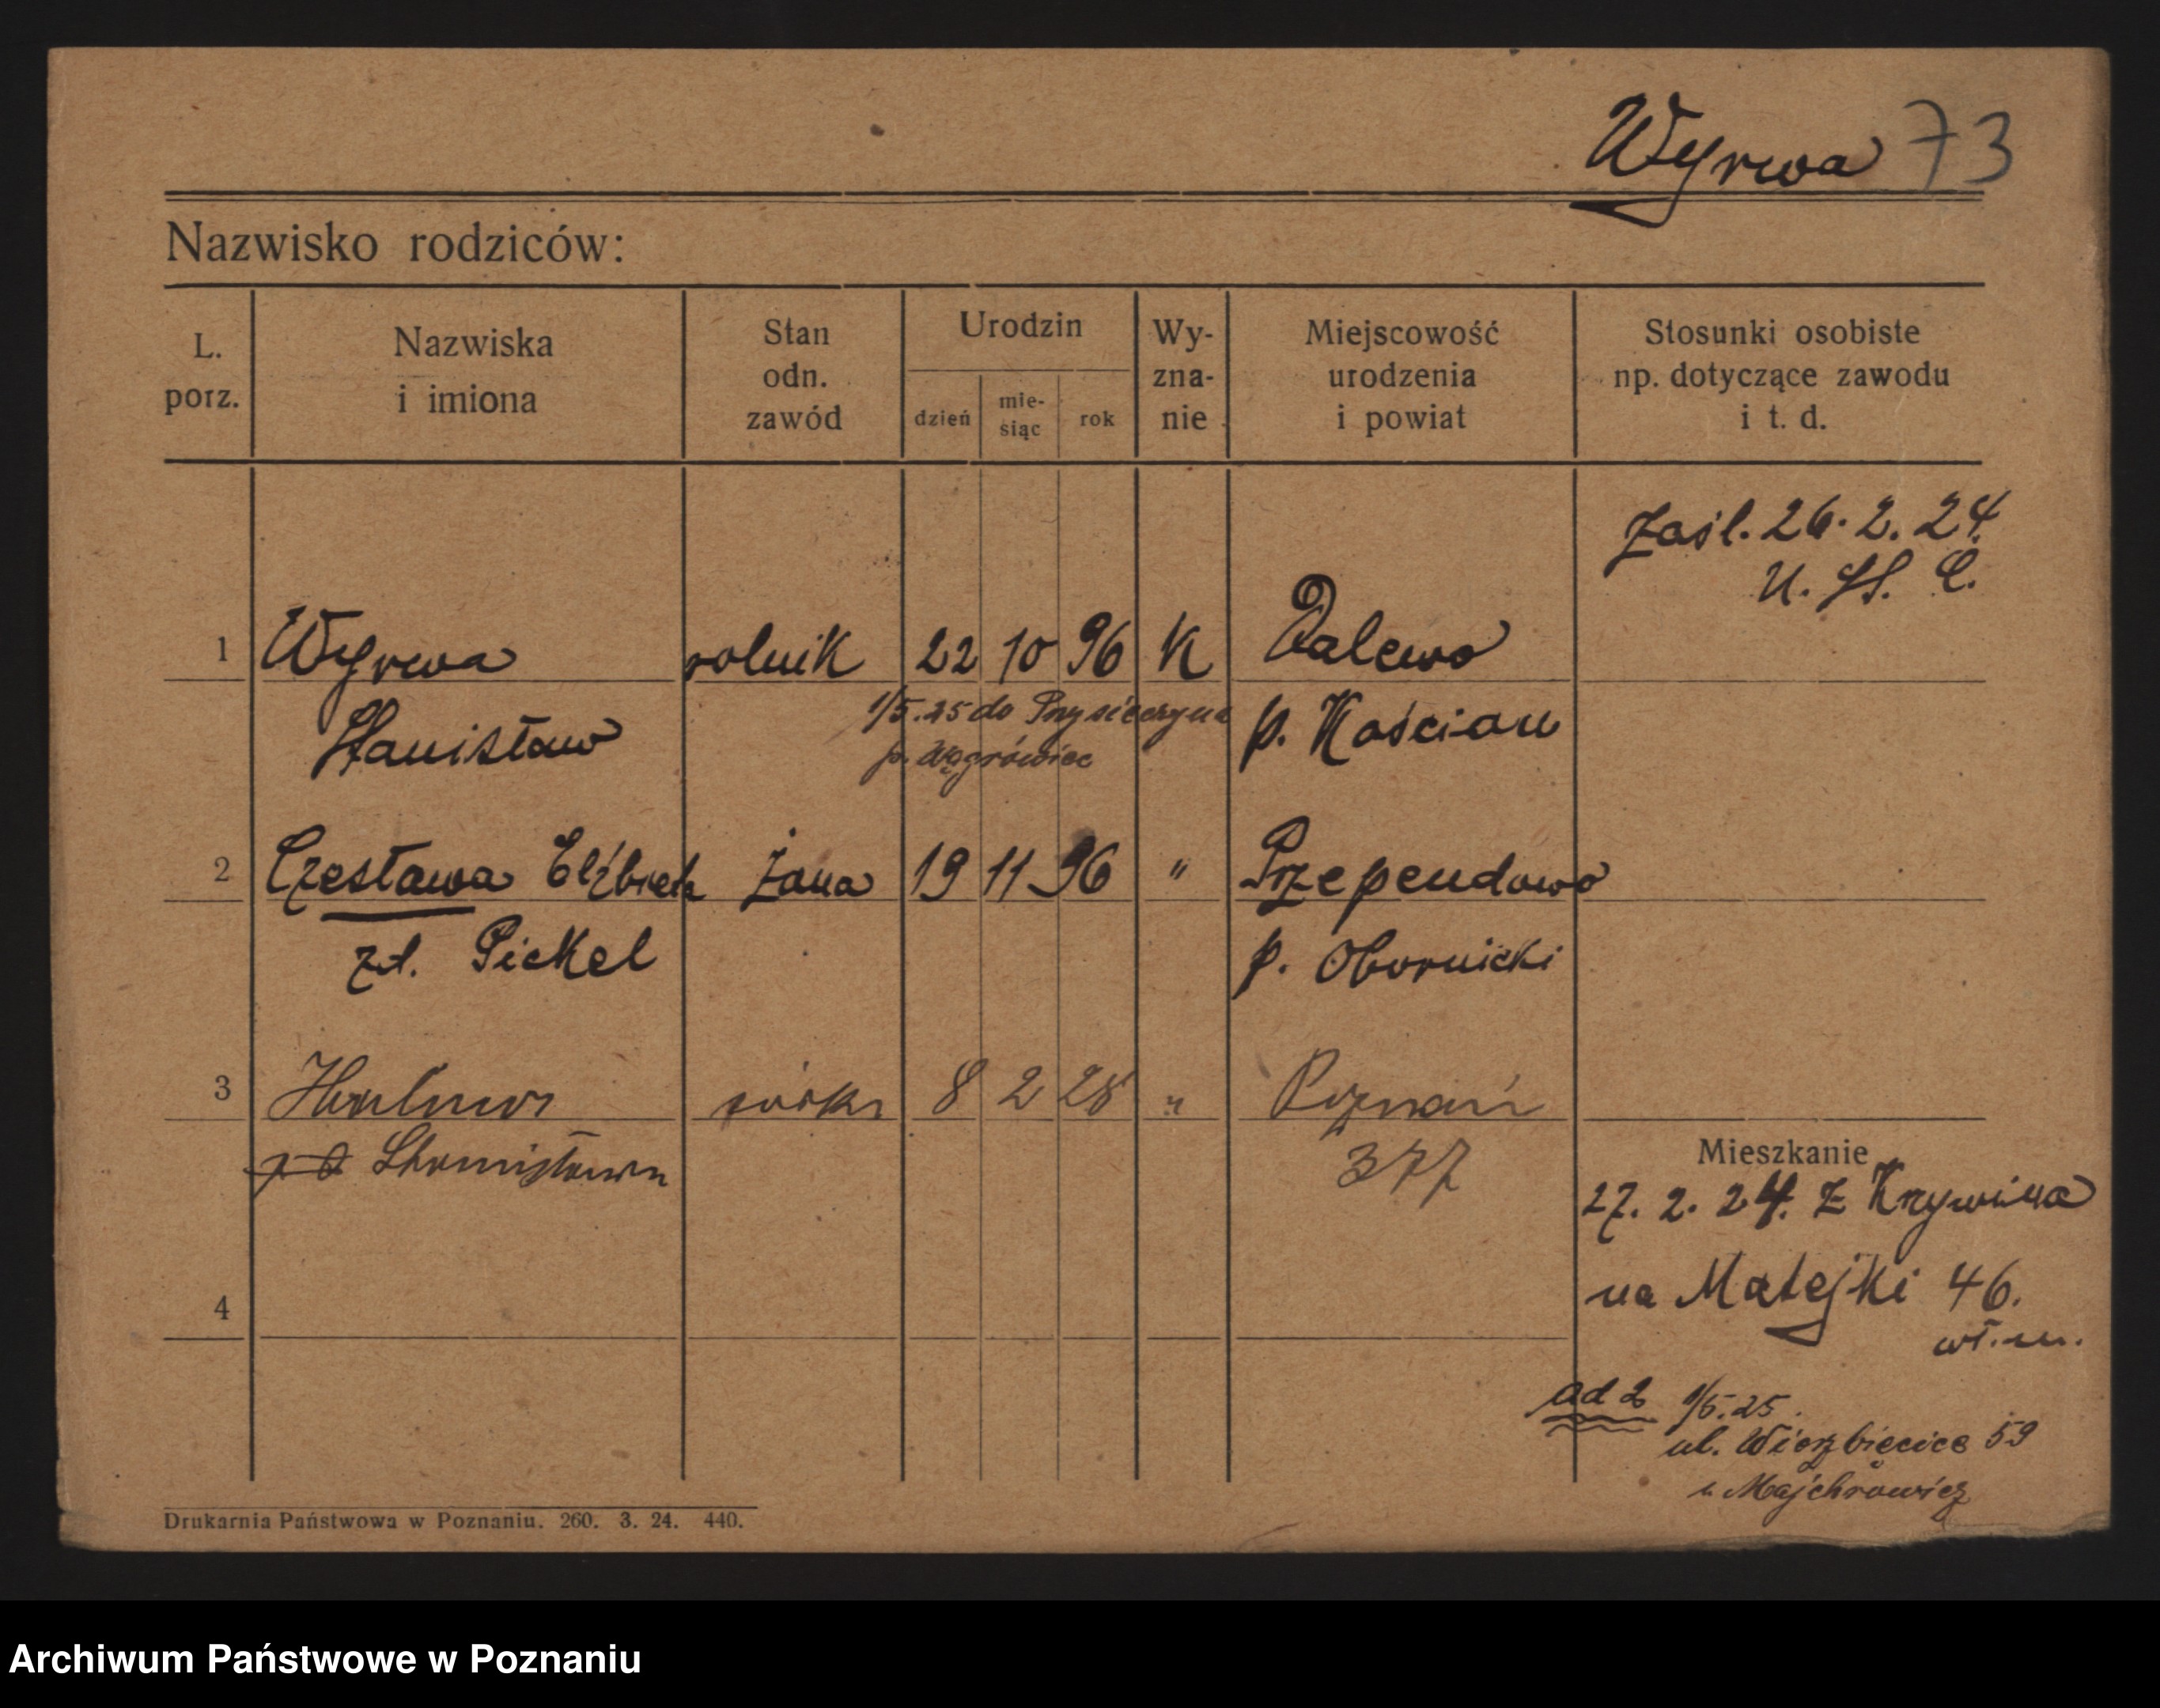 Wyrwa 73
Nazwisko rodziców:
L. porz.
Nazwiska i imiona
Stan odn. zawód
Urodzin
dzień
mie-siąc
rok
Wy-zna-nie
Miejscowość urodzenia i powiat
Stosunki osobiste np. dotyczące zawodu i t. d.
Zaśl. 26. 2. 24.
U. S. C.
1 Wyrwa rolnik 22 10 96 K Dalewo
Stanisław p. Kościan
1/5.25 do Przysieczyna
p. Wągrówiec
2 Czesława Elżbieta żona 19 11 96 " Przependowo
zd. Pickel p. Obornicki
3 Halina córka 8 2 28 " Poznań
377
4
Mieszkanie
27. 2. 24. z Krzywinia
na Matejki 46.
wł. m.
ad 2 1/5.25.
ul. Wierzbięcice 59
u Majchrowicz
Drukarnia Państwowa w Poznaniu. 260. 3. 24. 440.
Archiwum Państwowe w Poznaniu